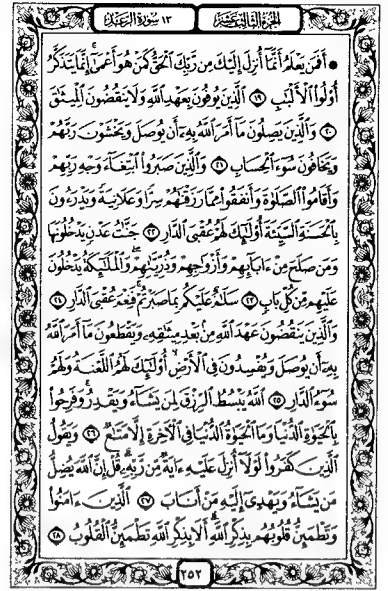 الجزء الثالث عشر
١٣ سورة الرعد
۞ أَفَمَن يَعْلَمُ أَنَّمَا أُنزِلَ إِلَيْكَ مِن رَّبِّكَ ٱلْحَقُّ كَمَنْ هُوَ أَعْمَىٰٓ إِنَّمَا يَتَذَكَّرُ
أُوْلُوا۟ ٱلْأَلْبَٰبِ ١٩ ٱلَّذِينَ يُوفُونَ بِعَهْدِ ٱللَّهِ وَلَا يَنقُضُونَ ٱلْمِيثَٰقَ
٢٠ وَٱلَّذِينَ يَصِلُونَ مَآ أَمَرَ ٱللَّهُ بِهِۦٓ أَن يُوصَلَ وَيَخْشَوْنَ رَبَّهُمْ
وَيَخَافُونَ سُوٓءَ ٱلْحِسَابِ ٢١ وَٱلَّذِينَ صَبَرُوا۟ ٱبْتِغَآءَ وَجْهِ رَبِّهِمْ
وَأَقَامُوا۟ ٱلصَّلَوٰةَ وَأَنفَقُوا۟ مِمَّا رَزَقْنَٰهُمْ سِرًّا وَعَلَانِيَةً وَيَدْرَءُونَ
بِٱلْحَسَنَةِ ٱلسَّيِّئَةَ أُو۟لَٰٓئِكَ لَهُمْ عُقْبَى ٱلدَّارِ ٢٢ جَنَّٰتُ عَدْنٍ يَدْخُلُونَهَا
وَمَن صَلَحَ مِنْ ءَابَآئِهِمْ وَأَزْوَٰجِهِمْ وَذُرِّيَّٰتِهِمْ وَٱلْمَلَٰٓئِكَةُ يَدْخُلُونَ
عَلَيْهِم مِّن كُلِّ بَابٍ ٢٣ سَلَٰمٌ عَلَيْكُم بِمَا صَبَرْتُمْ فَنِعْمَ عُقْبَى ٱلدَّارِ ٢٤
وَٱلَّذِينَ يَنقُضُونَ عَهْدَ ٱللَّهِ مِنۢ بَعْدِ مِيثَٰقِهِۦ وَيَقْطَعُونَ مَآ أَمَرَ ٱللَّهُ
بِهِۦٓ أَن يُوصَلَ وَيُفْسِدُونَ فِى ٱلْأَرْضِ أُو۟لَٰٓئِكَ لَهُمُ ٱللَّعْنَةُ وَلَهُمْ
سُوٓءُ ٱلدَّارِ ٢٥ ٱللَّهُ يَبْسُطُ ٱلرِّزْقَ لِمَن يَشَآءُ وَيَقْدِرُ وَفَرِحُوا۟
بِٱلْحَيَوٰةِ ٱلدُّنْيَا وَمَا ٱلْحَيَوٰةُ ٱلدُّنْيَا فِى ٱلْأَخِرَةِ إِلَّا مَتَٰعٌ ٢٦ وَيَقُولُ
ٱلَّذِينَ كَفَرُوا۟ لَوْلَآ أُنزِلَ عَلَيْهِ ءَايَةٌ مِّن رَّبِّهِۦ قُلْ إِنَّ ٱللَّهَ يُضِلُّ
مَن يَشَآءُ وَيَهْدِىٓ إِلَيْهِ مَنْ أَنَابَ ٢٧ ٱلَّذِينَ ءَامَنُوا۟
وَتَطْمَئِنُّ قُلُوبُهُم بِذِكْرِ ٱللَّهِ أَلَا بِذِكْرِ ٱللَّهِ تَطْمَئِنُّ ٱلْقُلُوبُ ٢٨
٢٥٢